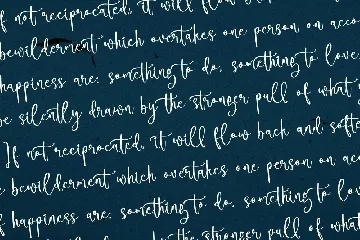 If not reciprocated, it will flow
bewilderment which overtakes one person on acco
happiness are: something to do, something to love
be silently drawn by the stronger pull of what
If not reciprocated, it will flow back and softe
bewilderment which overtakes one person on ac
f happiness are: something to do, something to lo
be the stronger pull of what